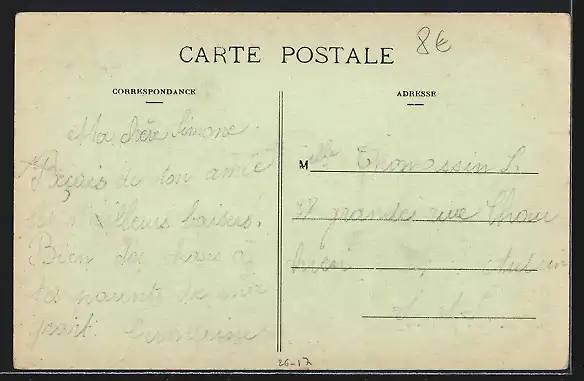 8€
CARTE POSTALE
CORRESPONDANCE
ADRESSE
Ma chère Simone
Reçois de ton amie
les meilleurs baisers.
Bien des choses à
tes parents de ma
part.
Melle Thomassin S.
grande rue
Autun
S.-L.
26-17